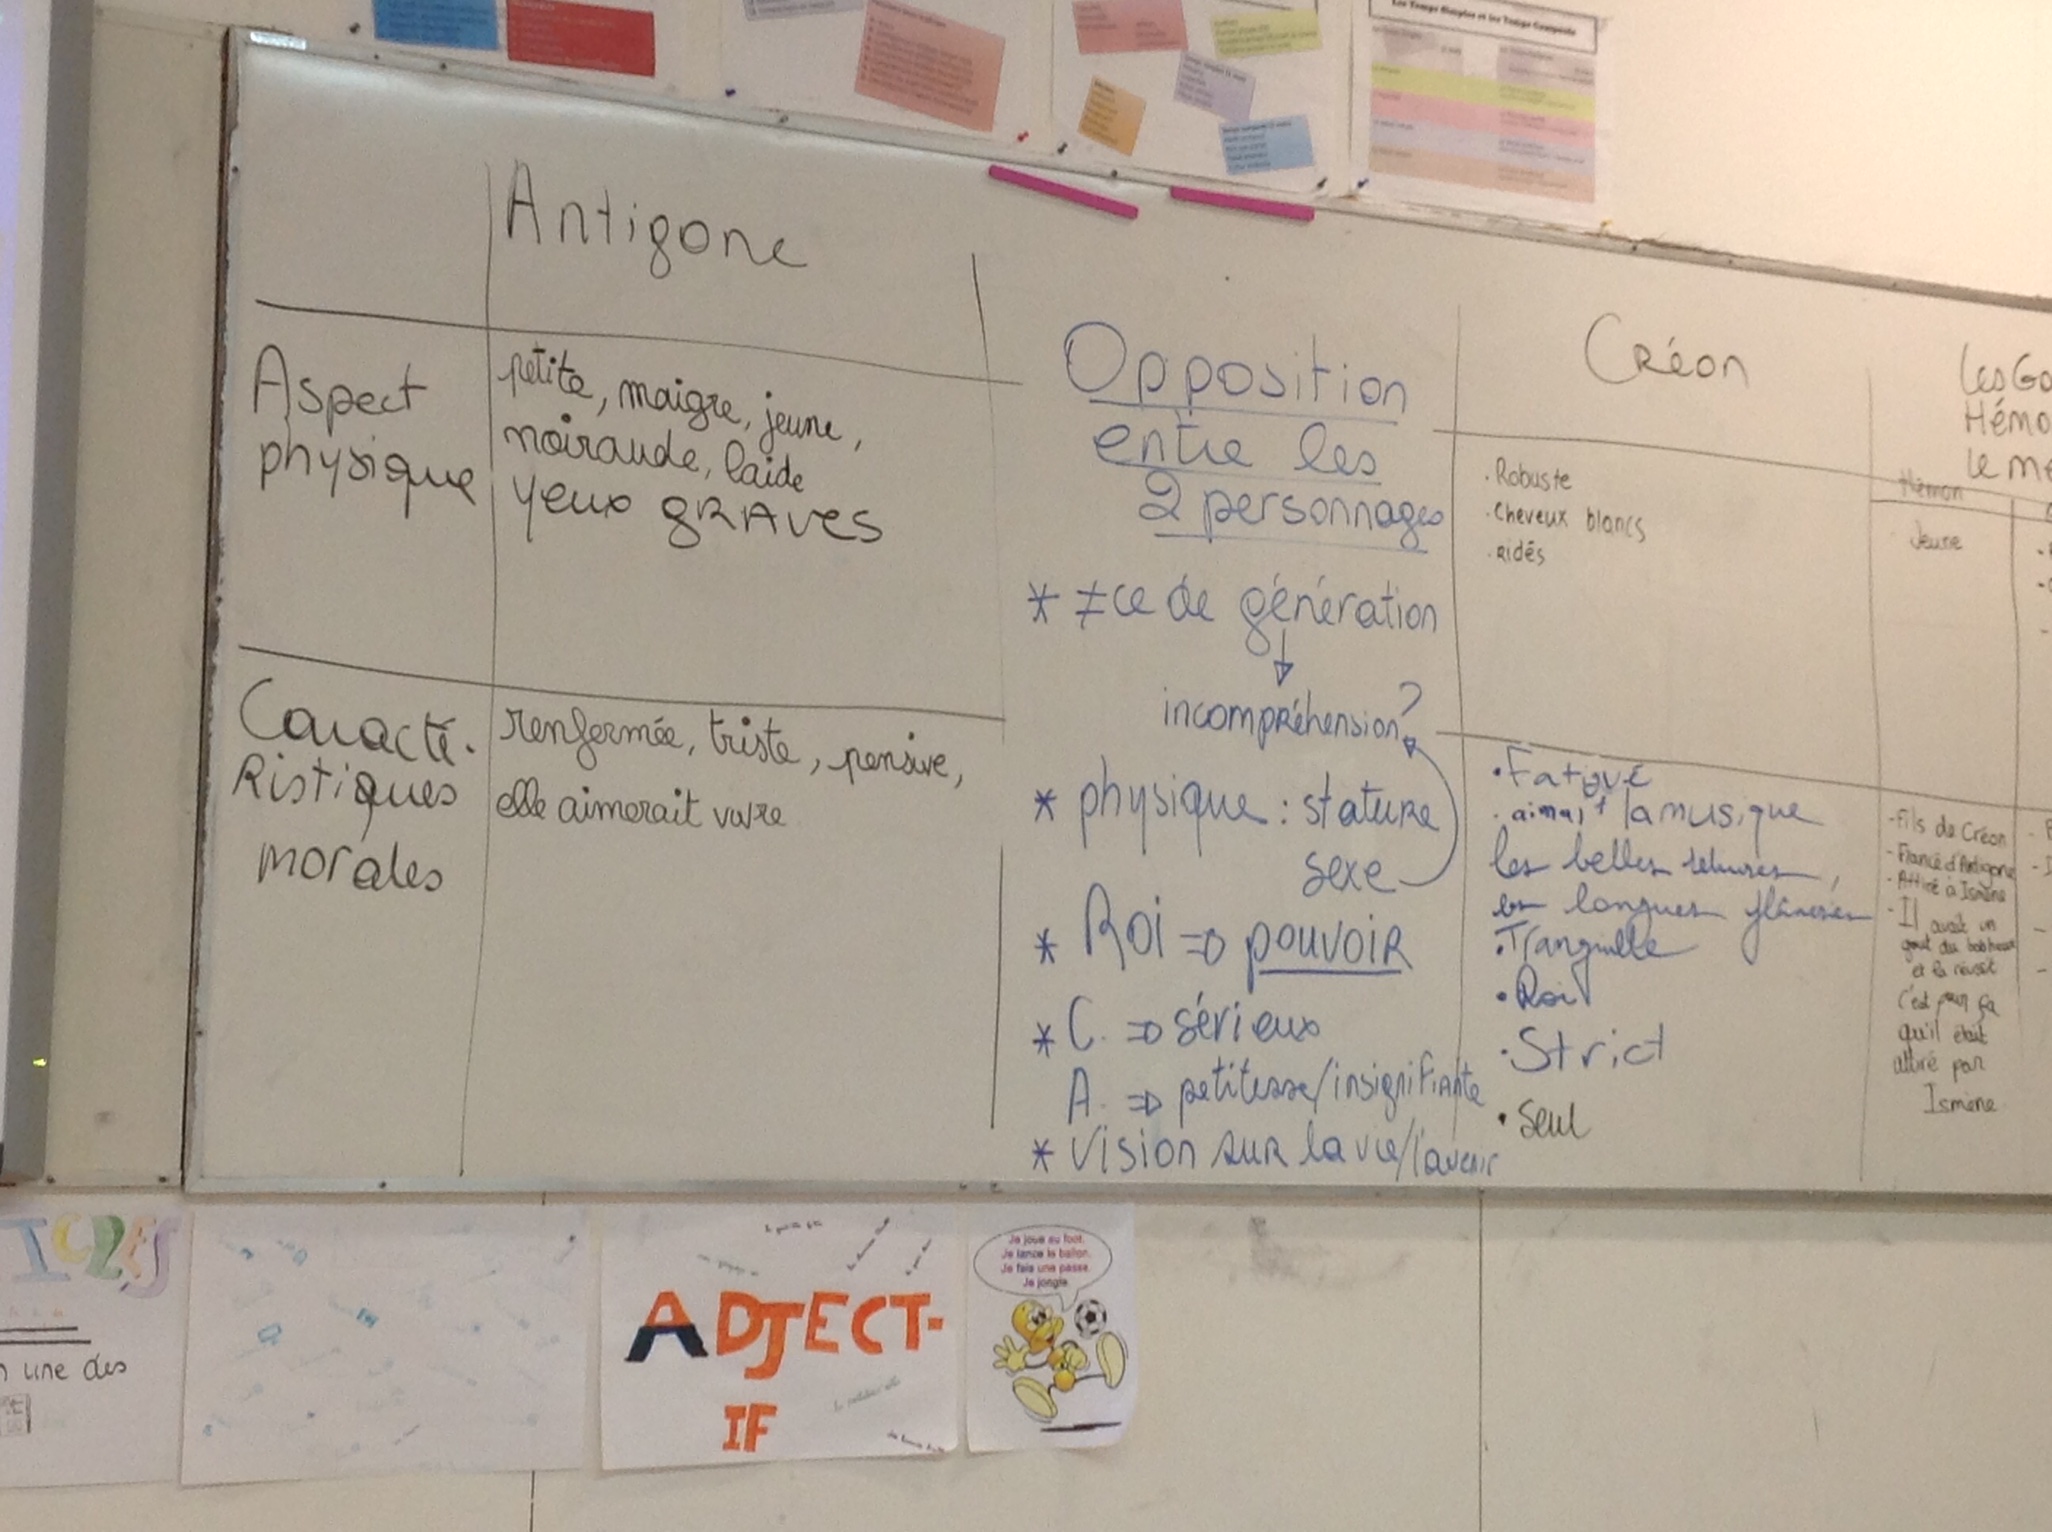 Les Temps Simples et les Temps Composés
Antigone
Aspect
physique
petite, maigre, jeune,
noiraude, laide
yeux graves
Caracté-
Ristiques
morales
renfermée, triste, pensive,
elle aimerait vivre
Opposition
entre les
2 personnages
* ≠ce de génération
↓
incompréhension?
* physique : stature
sexe
* Roi => pouvoir
* C. => sérieux
A. => petitesse/insignifiante
* Vision sur la vie/l'avenir
Créon
. Robuste
. Cheveux blancs
. ridés
• Fatigué
. aimait la musique
les belles reliures,
les longues flâneries
• Tranquille
• Roi
• Strict
• Seul
Les Ga
Hémo
Le me
Hémon
Jeune
- Fils de Créon
- Fiancé d'Antigone
- Attiré à Ismène
- Il avait un
gout du bonheur
et la réussit
C'est pour ça
qu'il était
attiré par
Ismène
ICLES
n une des
ADJECT-
IF
Je joue au foot.
Je lance le ballon.
Je fais une passe.
Je jongle.